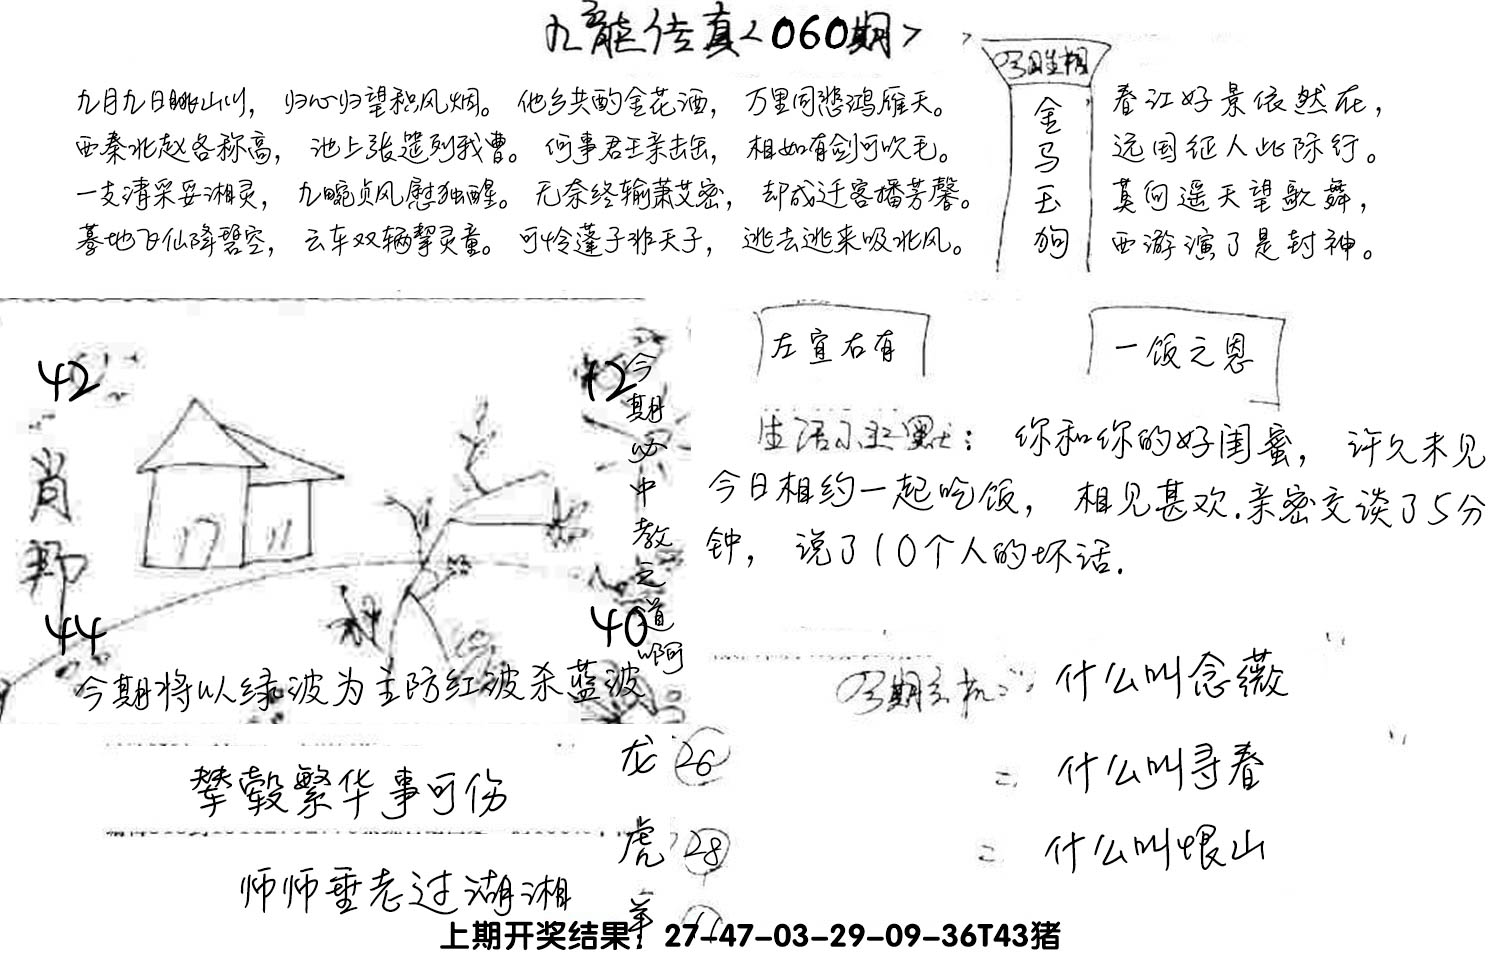 九龙传真<060期>
今日生相
金马玉狗
九月九日眺山川，归心归望积风烟。他乡共酌金花酒，万里同悲鸿雁天。
西秦北赵各称高，池上张筵列我曹。何事君王亲击缶，相如有剑可吹毛。
一支清采妥湘灵，九畹贞风慰独醒。无奈终输萧艾密，却成迁客播芳馨。
蓦地飞仙降碧空，云车双辆挈灵童。可怜蓬子非天子，逃去逃来吸北风。
春江好景依然在，
远国征人此际行。
莫向遥天望歌舞，
西游演了是封神。
左宜右有
一饭之恩
42
12
肖
44
40
今期必中教之道啊
今期将以绿波为主防红波杀蓝波
生活小幽默：你和你的好闺蜜，许久未见
今日相约一起吃饭，相见甚欢.亲密交谈了5分
钟，说了10个人的坏话.
什么叫念薇
= 什么叫寻春
= 什么叫恨山
辇毂繁华事可伤
师师垂老过湖湘
龙 26
虎 28
羊
上期开奖结果：27-47-03-29-09-36T43猪